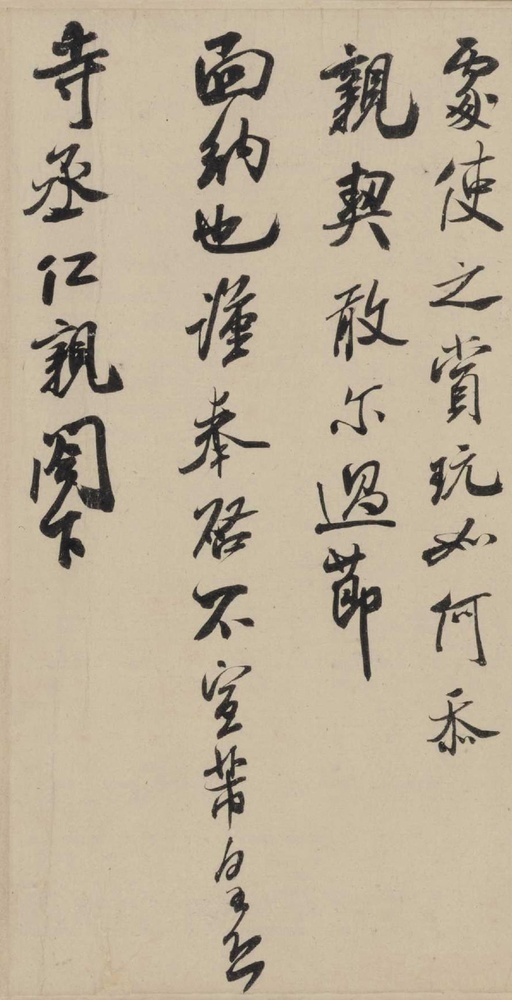 處使之賞玩如何忝
親契敢尔過節
面納也謹奉啓不宣芾皇恐
寺丞仁親閣下